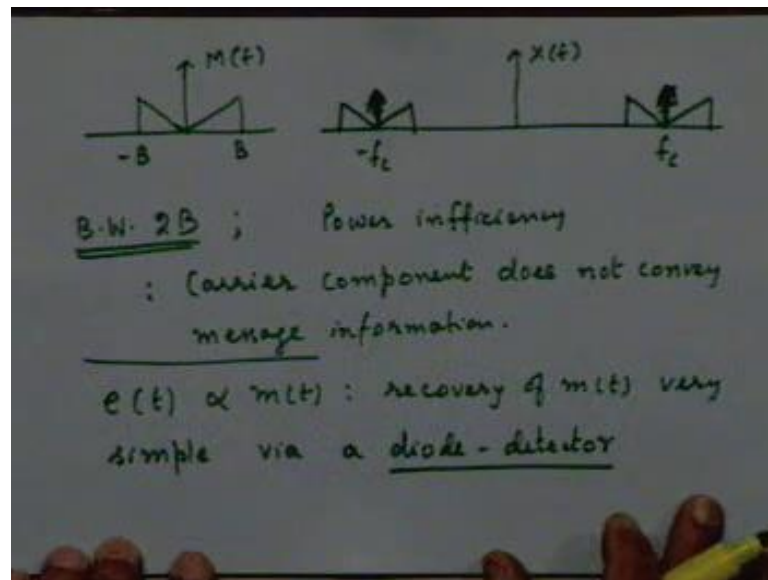 M(f) X(f)
-B B -fc fc
B.W. 2B ; Power infficiency
: Carrier component does not convey
message information.
e(t) ∝ m(t) : recovery of m(t) very
simple via a diode-detector